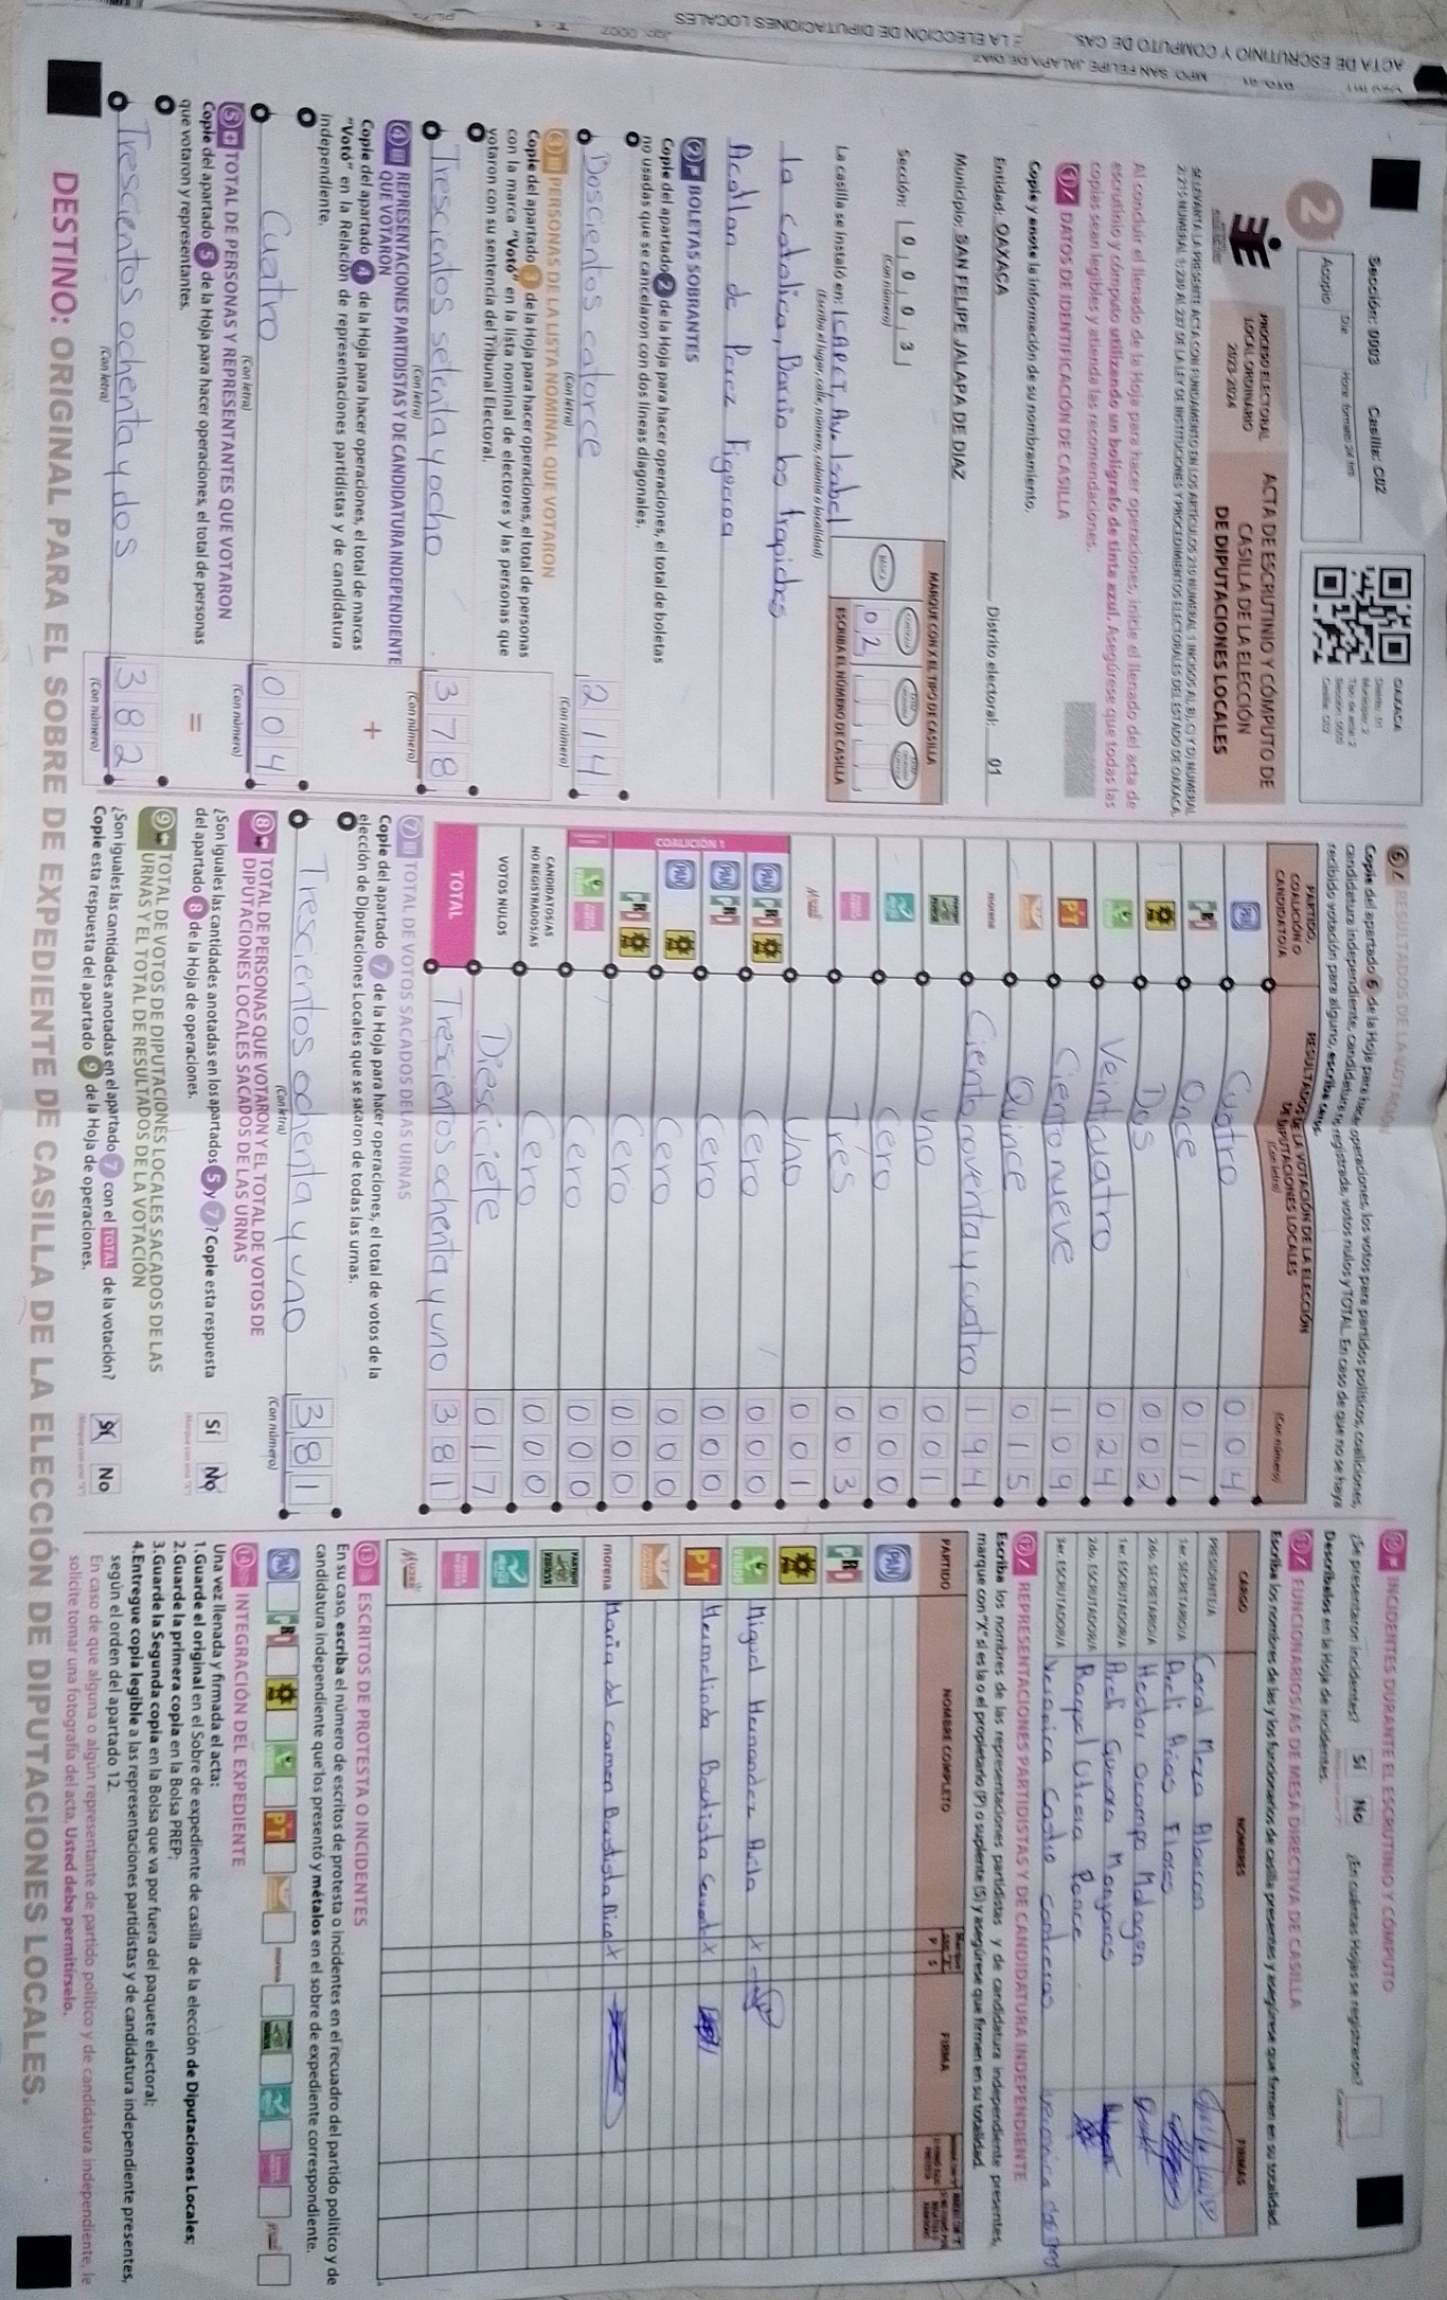 Sección: 0003 Casilla: C02
2
Acopio
Día
Hora: formato 24 hrs
OAXACA
PROCESO ELECTORAL
LOCAL ORDINARIO
2023-2024
ACTA DE ESCRUTINIO Y CÓMPUTO DE
CASILLA DE LA ELECCIÓN
DE DIPUTACIONES LOCALES
Al concluir el llenado de la Hoja para hacer operaciones, inicie el llenado del acta de
escrutinio y cómputo utilizando un bolígrafo de tinta azul. Asegúrese que todas las
copias sean legibles y atienda las recomendaciones.
1 DATOS DE IDENTIFICACIÓN DE CASILLA
Copie y anote la información de su nombramiento.
Entidad: OAXACA Distrito electoral: 01
Municipio: SAN FELIPE JALAPA DE DIAZ
Sección: 0 0 0 3
(Con número)
MARQUE CON X EL TIPO DE CASILLA
BÁSICA
02
ESCRIBA EL NÚMERO DE CASILLA
La casilla se instaló en: ICAPET, Av. Isabel
(Escriba el lugar, calle, número, colonia o localidad)
la catolica, Barrio los trapiches
Acatlan de Perez Figueroa
2 BOLETAS SOBRANTES
Copie del apartado 2 de la Hoja para hacer operaciones, el total de boletas
no usadas que se cancelaron con dos líneas diagonales.
Doscientos catorce 214
(Con letra) (Con número)
3 PERSONAS DE LA LISTA NOMINAL QUE VOTARON
Copie del apartado 3 de la Hoja para hacer operaciones, el total de personas
con la marca "Votó" en la lista nominal de electores y las personas que
votaron con su sentencia del Tribunal Electoral.
Trescientos setenta y ocho 378
(Con letra) (Con número)
4 REPRESENTACIONES PARTIDISTAS Y DE CANDIDATURA INDEPENDIENTE
QUE VOTARON
+
Copie del apartado 4 de la Hoja para hacer operaciones, el total de marcas
"Votó" en la Relación de representaciones partidistas y de candidatura
independiente.
Cuatro 004
(Con letra) (Con número)
5 TOTAL DE PERSONAS Y REPRESENTANTES QUE VOTARON
=
Copie del apartado 5 de la Hoja para hacer operaciones, el total de personas
que votaron y representantes.
Trescientos ochenta y dos 382
(Con letra) (Con número)
6 RESULTADOS DE LA VOTACIÓN
Copie del apartado 6 de la Hoja para hacer operaciones, los votos para partidos políticos, coaliciones,
candidatura independiente, candidatura no registrada, votos nulos y TOTAL. En caso de que no se haya
recibido votación para alguno, escriba ceros.
PARTIDO,
COALICIÓN O
CANDIDATO/A
RESULTADOS DE LA VOTACIÓN DE LA ELECCIÓN
DE DIPUTACIONES LOCALES
(Con letra)
(Con número)
PAN Cuatro 004
PRI Once 011
PRD Dos 002
VERDE Veinticuatro 024
PT Ciento nueve 109
Quince 015
morena Ciento noventa y cuatro 194
uno 001
Cero 000
Tres 003
Uno 001
COALICIÓN 1
PAN PRI PRD Cero 000
PAN PRI Cero 000
PAN PRD Cero 000
PRI PRD Cero 000
VERDE Cero 000
CANDIDATOS/AS
NO REGISTRADOS/AS Cero 000
VOTOS NULOS Diesciciete 017
TOTAL Trescientos ochenta y uno 381
7 TOTAL DE VOTOS SACADOS DE LAS URNAS
Copie del apartado 7 de la Hoja para hacer operaciones, el total de votos de la
elección de Diputaciones Locales que se sacaron de todas las urnas.
Trescientos ochenta y uno 381
(Con letra) (Con número)
8 TOTAL DE PERSONAS QUE VOTARON Y EL TOTAL DE VOTOS DE
DIPUTACIONES LOCALES SACADOS DE LAS URNAS
¿Son iguales las cantidades anotadas en los apartados 5 y 7? Copie esta respuesta
del apartado 8 de la Hoja de operaciones.
Sí No
9 TOTAL DE VOTOS DE DIPUTACIONES LOCALES SACADOS DE LAS
URNAS Y EL TOTAL DE RESULTADOS DE LA VOTACIÓN
¿Son iguales las cantidades anotadas en el apartado 7 con el TOTAL de la votación?
Copie esta respuesta del apartado 9 de la Hoja de operaciones.
Sí No
10 INCIDENTES DURANTE EL ESCRUTINIO Y CÓMPUTO
¿Se presentaron incidentes? Sí No ¿En cuántas Hojas se registraron?
Descríbalos en la Hoja de incidentes.
11 FUNCIONARIOS/AS DE MESA DIRECTIVA DE CASILLA
Escriba los nombres de las y los funcionarios de casilla presentes y asegúrese que firmen en su totalidad.
CARGO NOMBRES FIRMAS
PRESIDENTE/A Coral Meza Alarcon
1er. SECRETARIO/A Areli Arias Flores
2do. SECRETARIO/A Hector Ocampo Malagon
1er. ESCRUTADOR/A
2do. ESCRUTADOR/A Raquel Utrera Ponce
3er. ESCRUTADOR/A Veronica Castro Contreras
12 REPRESENTACIONES PARTIDISTAS Y DE CANDIDATURA INDEPENDIENTE
Escriba los nombres de las representaciones partidistas y de candidatura independiente presentes,
marque con "X" si es la o el propietario (P) o suplente (S) y asegúrese que firmen en su totalidad.
PARTIDO NOMBRE COMPLETO P S FIRMA
PAN
PRI
PRD
VERDE Miguel Hernandez X
PT Hermelinda Bautista X
morena Maria del carmen Bautista X
13 ESCRITOS DE PROTESTA O INCIDENTES
En su caso, escriba el número de escritos de protesta o incidentes en el recuadro del partido político y de
candidatura independiente que los presentó y métalos en el sobre de expediente correspondiente.
PAN PRI PRD VERDE PT morena
14 INTEGRACIÓN DEL EXPEDIENTE
Una vez llenada y firmada el acta:
1.Guarde el original en el Sobre de expediente de casilla de la elección de Diputaciones Locales;
2.Guarde la primera copia en la Bolsa PREP;
3.Guarde la Segunda copia en la Bolsa que va por fuera del paquete electoral;
4.Entregue copia legible a las representaciones partidistas y de candidatura independiente presentes,
según el orden del apartado 12.
En caso de que alguna o algún representante de partido político y de candidatura independiente, le
solicite tomar una fotografía del acta, Usted debe permitírselo.
DESTINO: ORIGINAL PARA EL SOBRE DE EXPEDIENTE DE CASILLA DE LA ELECCIÓN DE DIPUTACIONES LOCALES.
MPO. SAN FELIPE JALAPA DE DIAZ
ACTA DE ESCRUTINIO Y COMPUTO DE CAS
E LA ELECCIÓN DE DIPUTACIONES LOCALES